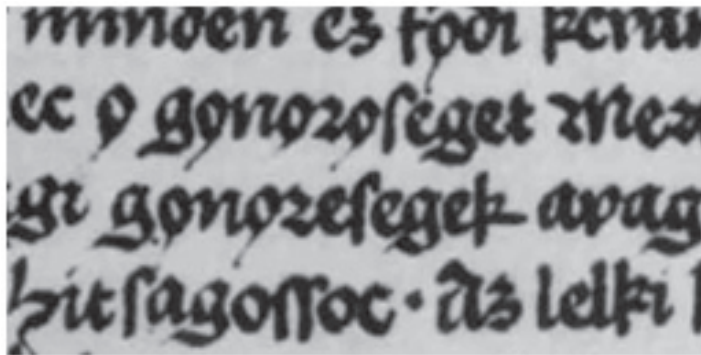 minden ez fǫdi
ec ǫ gǫnǫrǫſeget Mer
gi gǫnǫreſegek avag
hitſagoſſoc · Az lelki